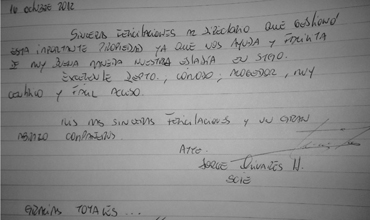 16 octubre 2012
Sinceras felicitaciones al directorio que gestionó
esta importante propiedad ya que nos ayuda y facilita
de muy buena manera nuestra estadía en
Excelente depto., comodo, acogedor, muy
central y fácil acceso.
Mis mas sinceras felicitaciones y un gran
abrazo compañeros
Atte.
Jorge Olivares N.
Gracias Totales...